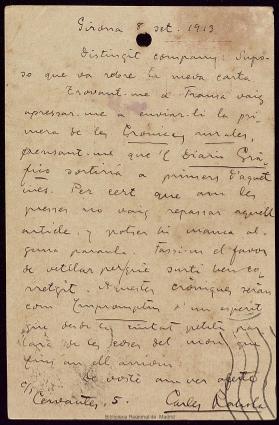 Girona 8 set. 1913
Distingit company: Supo-
so que va rebre la meva carta
Trovant-me a Fransa vaig
apressar-me a enviar-li la pri-
mera de les Cròniques rurales,
pensant-me que'l Diari Grà-
fico sortiria a primers d'aquet
mes. Per cert que am les
presses no vaig repassar aquell
article, y potser hi manca al-
guna paraula. Fassi-m el favor
de vetllar perque surti ben co-
rretgit. Aquestes cròniques seràn
com Impromptus d'un esperit
que desde la ciutat petita par-
larà de les coses del mon que
fins an ell arriven.
De vostè am ver afecte
Carles Rahola
c/ Cervantes, 5.
Biblioteca Regional de Madrid